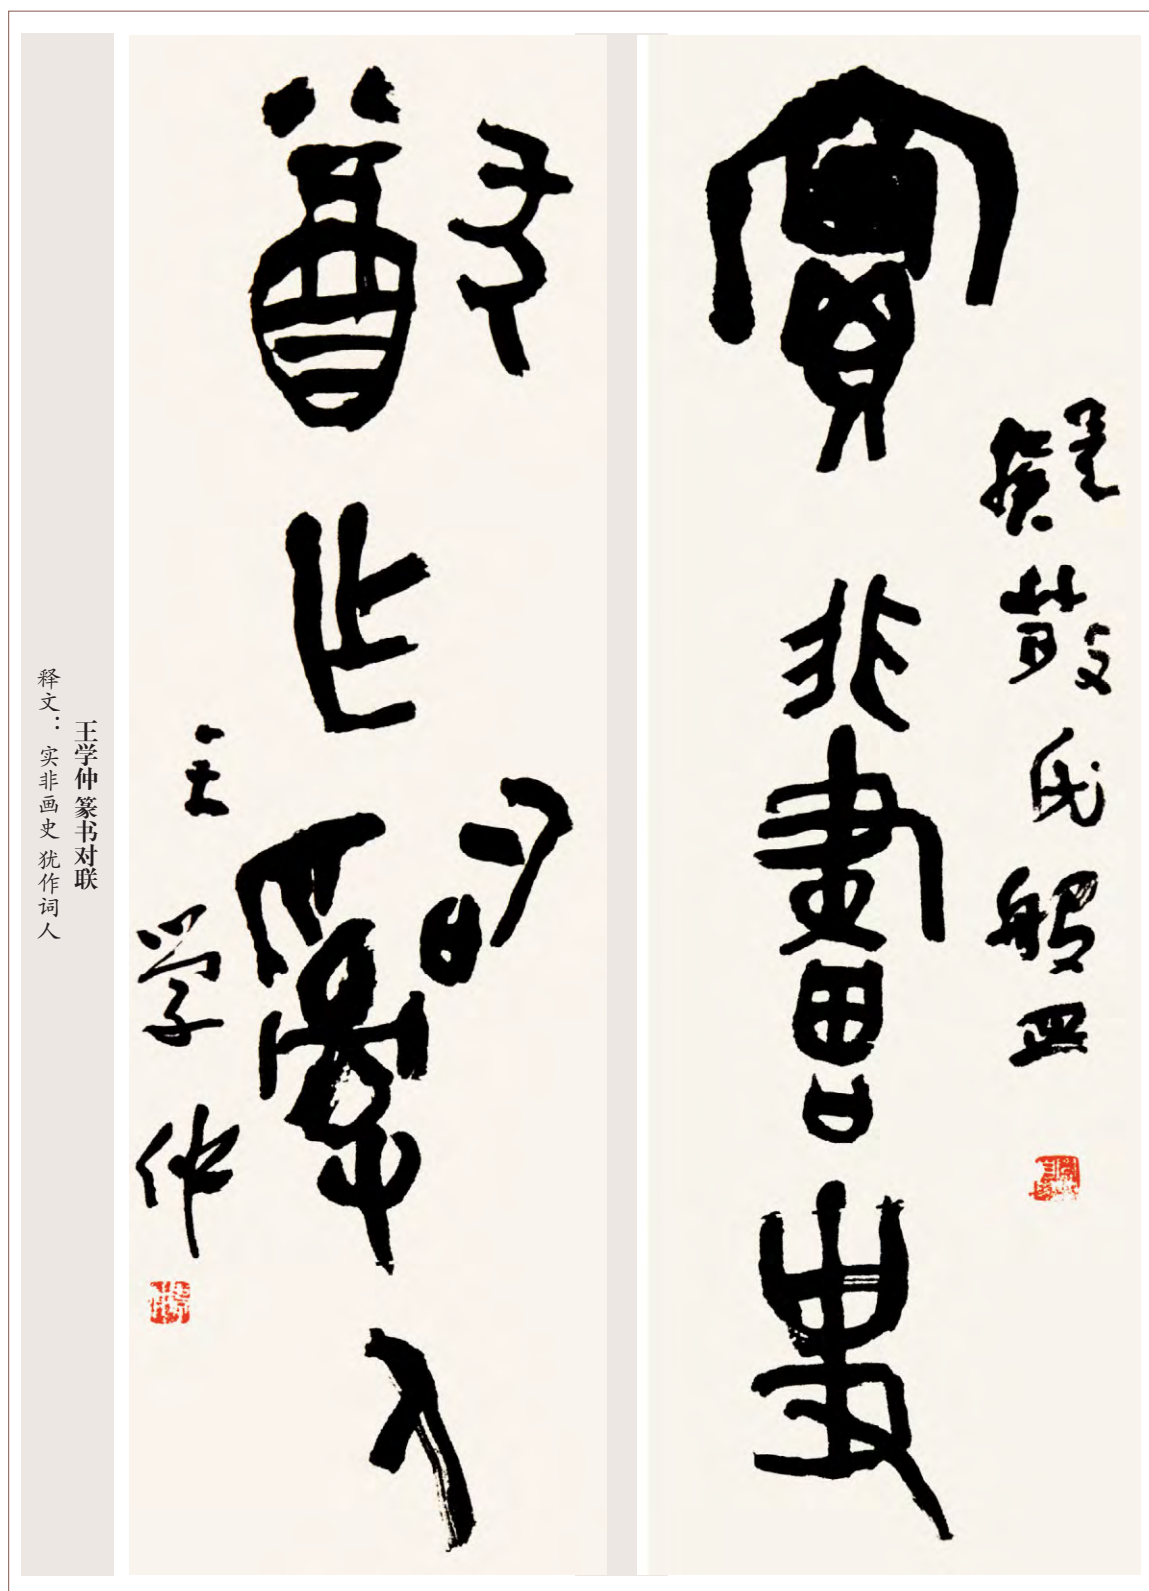 實非畫史
擬散氏盤
猷作辭人
王學仲
王学仲 篆书对联
释文：实非画史 犹作词人